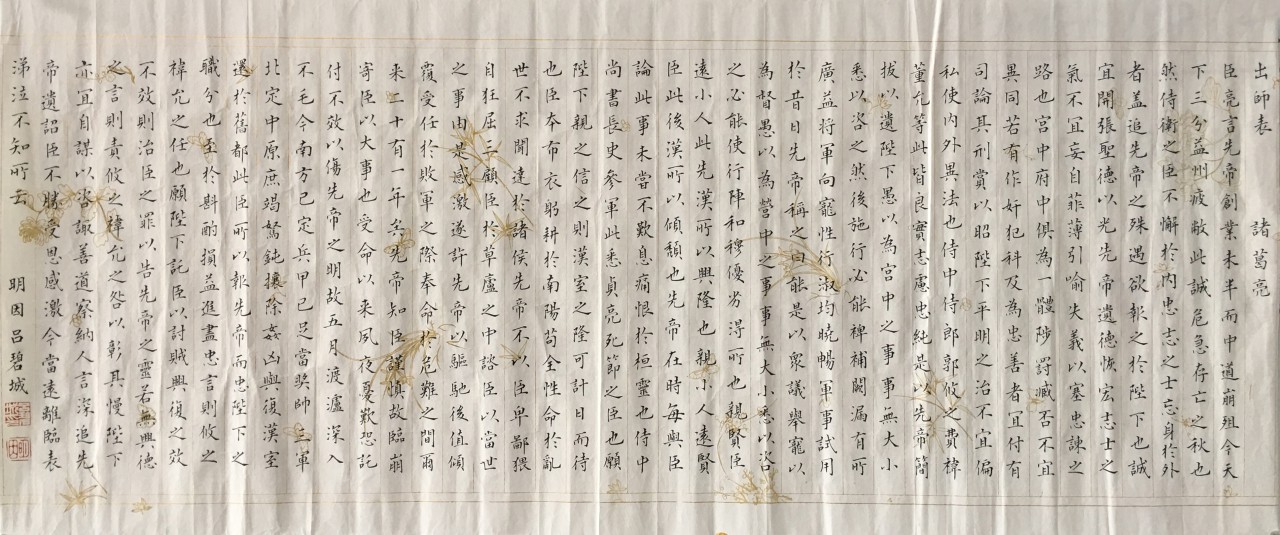 出師表 諸葛亮
臣亮言先帝創業未半而中道崩殂今天
下三分益州疲敝此誠危急存亡之秋也
然侍衛之臣不懈於內忠志之士忘身於外
者盖追先帝之殊遇欲報之於陛下也誠
宜開張聖德以光先帝遺德恢宏志士之
氣不宜妄自菲薄引喻失義以塞忠諫之
路也宮中府中俱為一體陟罰臧否不宜
異同若有作奸犯科及為忠善者宜付有
司論其刑賞以昭陛下平明之治不宜偏
私使內外異法也侍中侍郎郭攸之費禕
董允等此皆良實志慮忠純是以先帝簡
拔以遺陛下愚以為宮中之事事無大小
悉以咨之然後施行必能裨補闕漏有所
廣益將軍向寵性行淑均曉暢軍事試用
於昔日先帝稱之曰能是以眾議舉寵以
為督愚以為營中之事事無大小悉以咨
之必能使行陣和穆優劣得所也親賢臣
遠小人此先漢所以興隆也親小人遠賢
臣此後漢所以傾頹也先帝在時每與臣
論此事未嘗不歎息痛恨於桓靈也侍中
尚書長史參軍此悉貞亮死節之臣也願
陛下親之信之則漢室之隆可計日而待
也臣本布衣躬耕於南陽苟全性命於亂
世不求聞達於諸侯先帝不以臣卑鄙猥
自狂屈三顧臣於草廬之中諮臣以當世
之事由是感激遂許先帝以驅馳後值傾
覆受任於敗軍之際奉命於危難之間爾
来二十有一年矣先帝知臣謹慎故臨崩
寄臣以大事也受命以来夙夜憂歎恐託
付不效以傷先帝之明故五月渡瀘深入
不毛今南方已定兵甲已足當獎帥三軍
北定中原庶竭駑鈍攘除姦凶興復漢室
還於舊都此臣所以報先帝而忠陛下之
職分也至於斟酌損益進盡忠言則攸之
禕允之任也願陛下託臣以討賊興復之效
不效則治臣之罪以告先帝之靈若無興德
之言則責攸之禕允之咎以彰其慢陛下
亦宜自謀以咨諏善道察納人言深追先
帝遺詔臣不勝受恩感激今當遠離臨表
涕泣不知所云 明因呂碧城